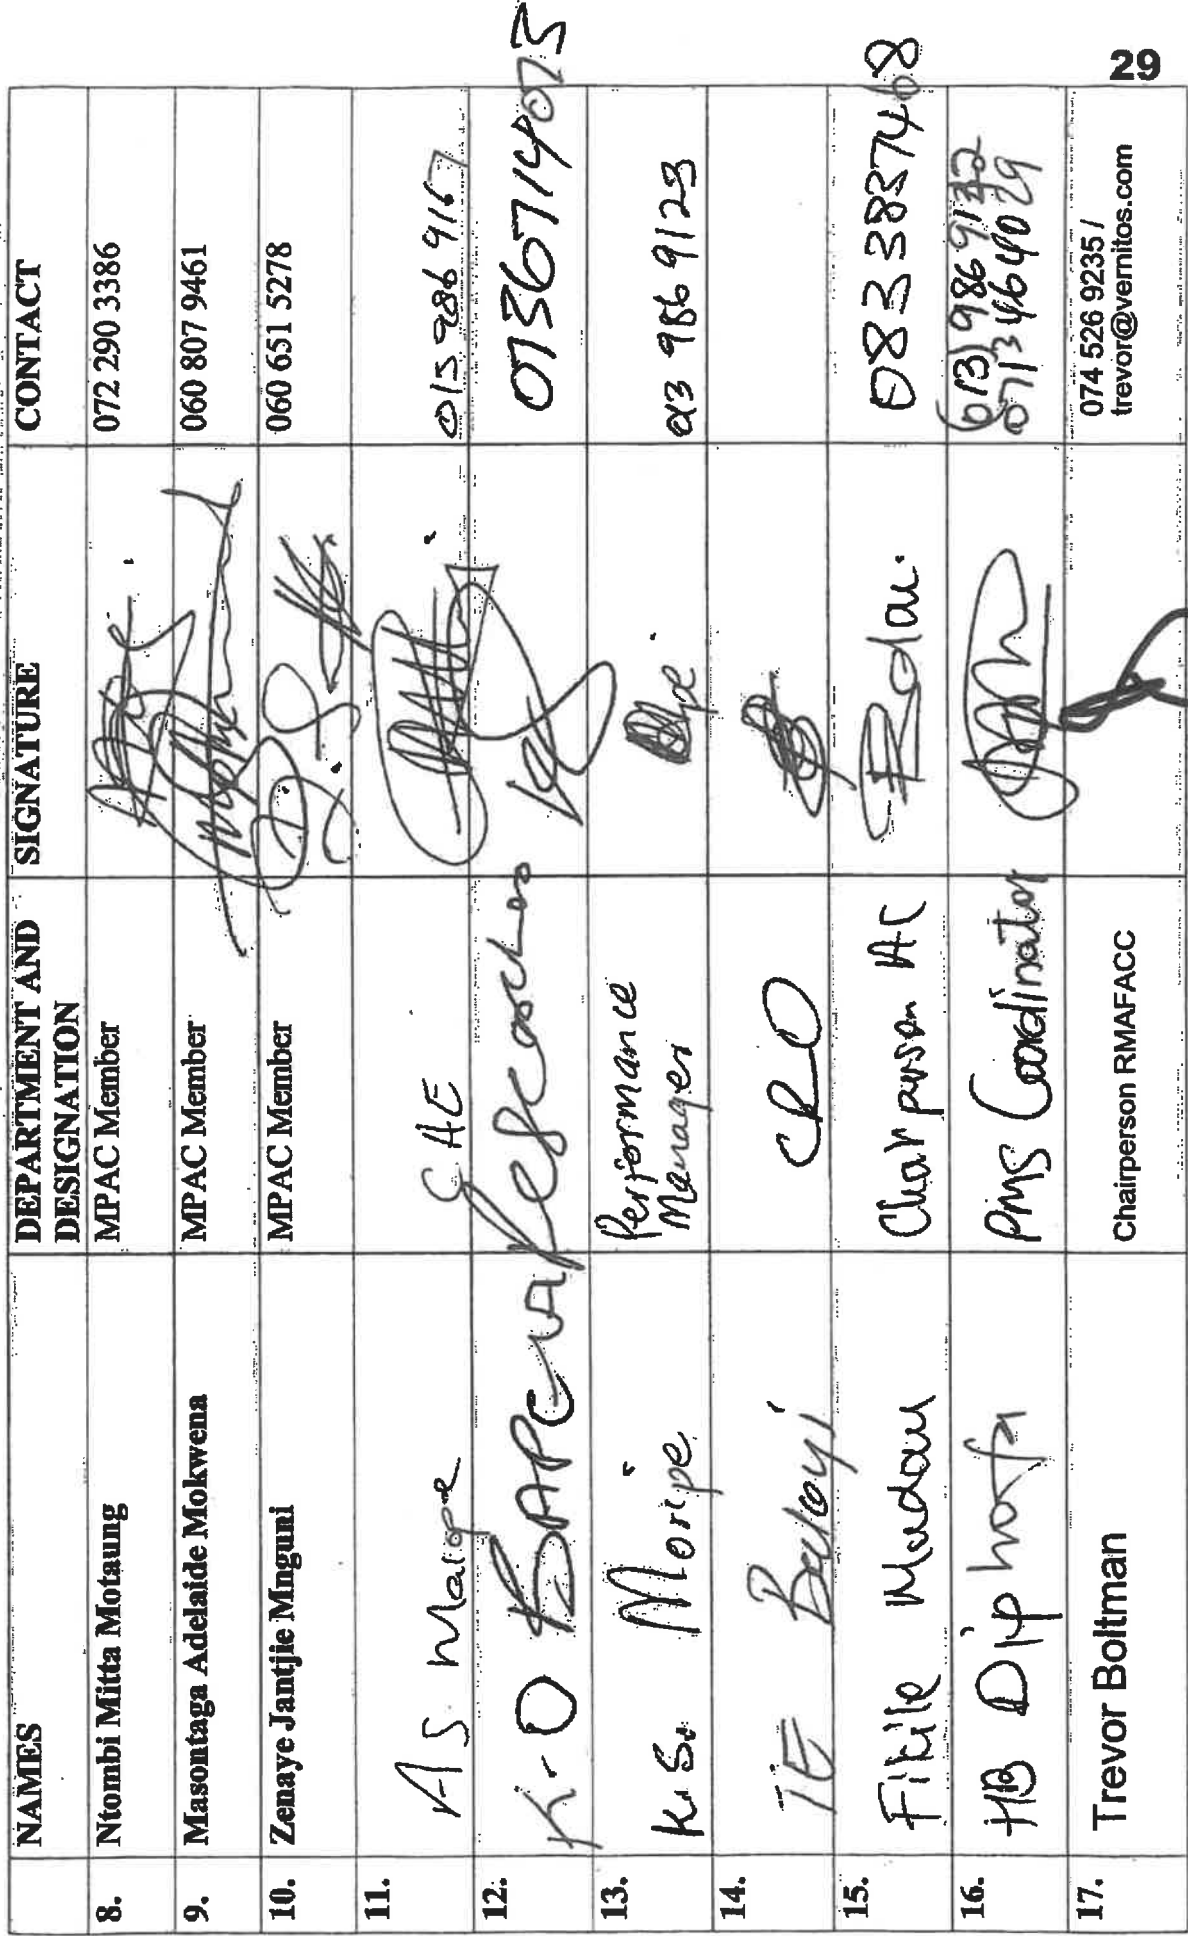 NAMES DEPARTMENT AND DESIGNATION SIGNATURE CONTACT
8. Ntombi Mitta Motaung MPAC Member 072 290 3386
9. Masontaga Adelaide Mokwena MPAC Member 060 807 9461
10. Zenaye Jantjie Mnguni MPAC Member 060 651 5278
11. AS CAE 015 986 9167
12. K.O BAPELA 0736714073
13. K.S. Moripe Performance Manager 013 986 9123
14. TE Baloyi CRO
15. Fikile Mudau Chairperson AC 0833837468
16. HB Diphofa PMS Coordinator (013) 986
17. Trevor Boltman Chairperson RMAFACC 074 526 9235 /
trevor@vernitos.com
29